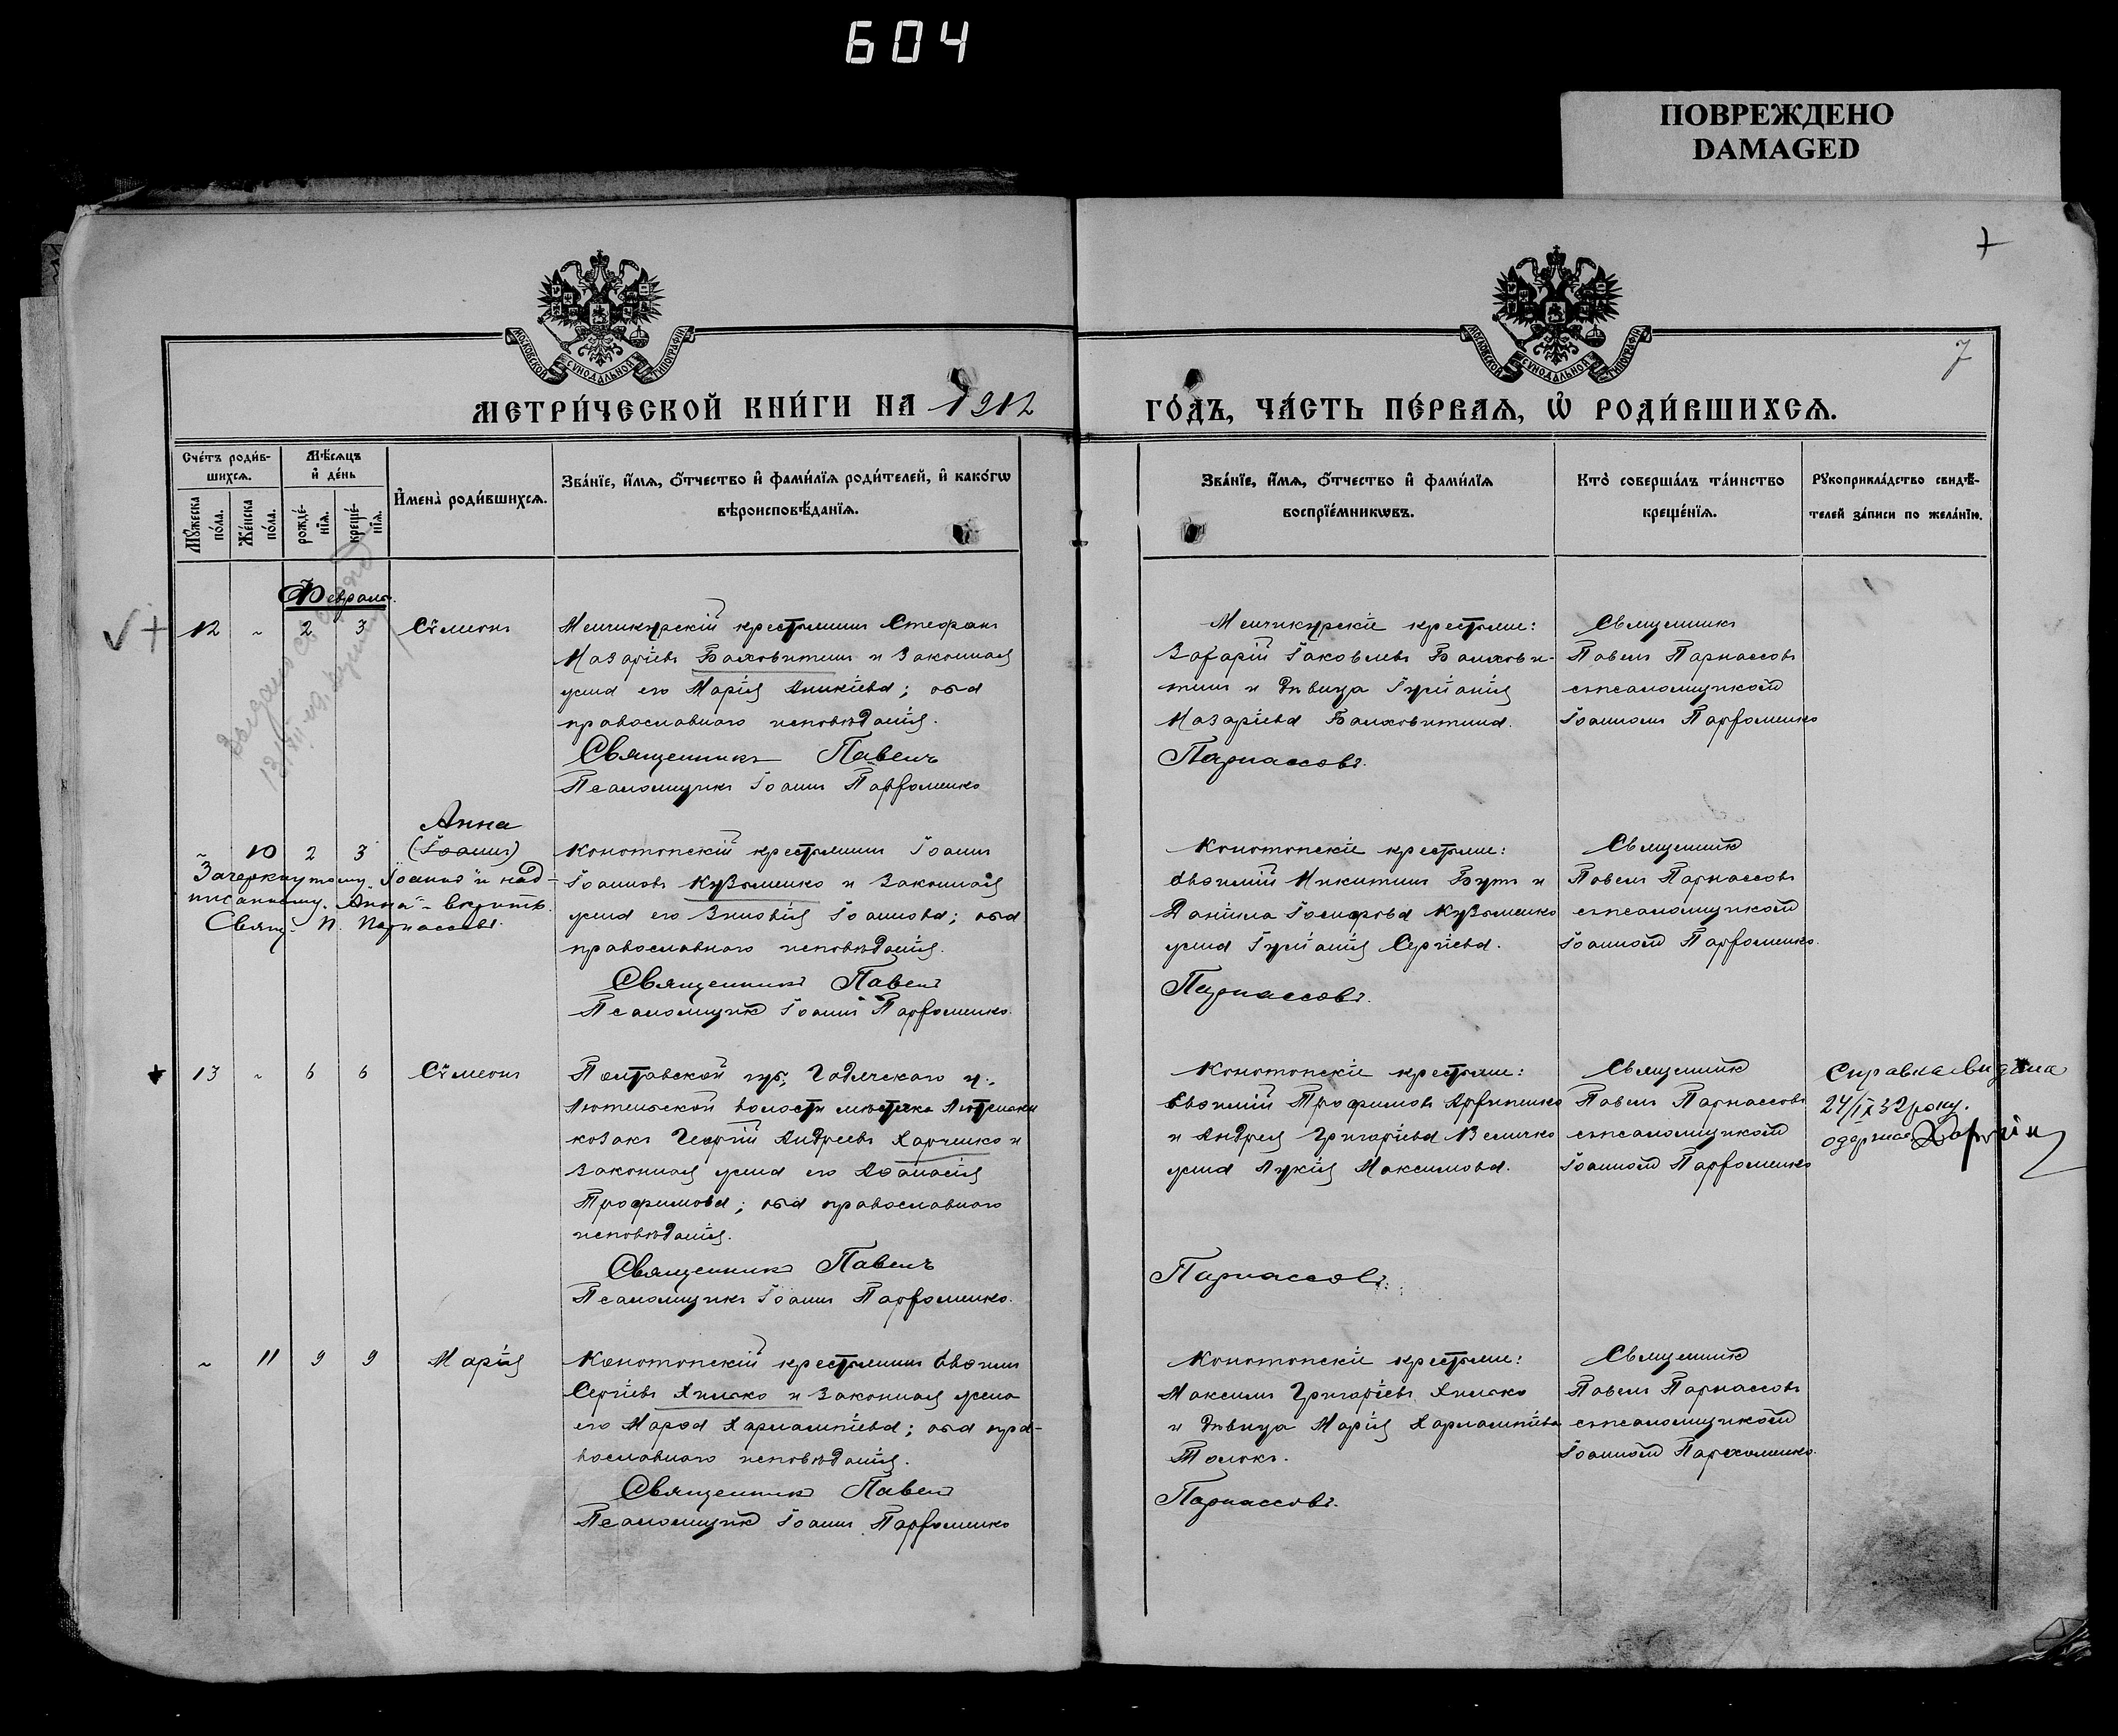 604
ПОВРЕЖДЕНО
DAMAGED
МОСКОВСКОЙ СѴНОДАЛЬНОЙ ТИПОГРАФІИ
МОСКОВСКОЙ СѴНОДАЛЬНОЙ ТИПОГРАФІИ
7
МЕТРИ́ЧЕСКОЙ КНИ́ГИ НА 1912
ГО́ДЪ, ЧА́СТЬ ПЕ́РВАѦ, Ѡ҆ РОДИ́ВШИХСѦ.
Сче́тъ роди́в-
шихсѧ.
Мѣ́сѧцъ
и҆ де́нь
Мꙋ́жеска по́ла.
Же́нска по́ла.
рожде́-
нїѧ.
креще́-
нїѧ.
И҆мена̀ роди́вшихсѧ.
Зва́нїе, и҆́мѧ, ѻ҆́тчество и҆ фами́лїѧ роди́телей, и҆ како́гѡ
вѣроисповѣ́данїѧ.
Зва́нїе, и҆́мѧ, ѻ҆́тчество и҆ фами́лїѧ
воспрїе́мникѡвъ.
Кто̀ соверша́лъ та́инство
креще́нїѧ.
Рꙋкоприкла́дство свидѣ́-
телей за́писи по жела́нїю.
Февраль.
12 " 2 3 Сѵмеонъ
Менчикурскій крестьянинъ Стефанъ
Назаріевъ Балховитинъ и законная
жена его Марія Аникіева; оба
православнаго исповѣданія.
Священникъ Павелъ
Псаломщикъ Іоаннъ Парфоменко
Менчикурскіе крестьяне:
Захарій Іаковлевъ Балхови-
тинъ и дѣвица Іуліанія
Назаріева Балховитина.
Парнассовъ.
Священникъ
Павелъ Парнассовъ
съ псаломщикомъ
Іоанномъ Парфоменко
Выдано
Анна
" 10 2 3 (Іоаннъ)
Зачеркнутому "Іоаннъ" и над-
писанному "Анна" - вѣрить.
Свящ. П. Парнассовъ.
Конотопскій крестьянинъ Іоаннъ
Іоанновъ Кузьменко и законная
жена его Зиновія Іоаннова; оба
православнаго исповѣданія.
Священникъ Павелъ
Псаломщикъ Іоаннъ Парфоменко.
Конотопскіе крестьяне:
Евѳимій Никитинъ Бутъ и
Даніила Іосифова Кузьменко
жена Іуліанія Сергіева.
Парнассовъ.
Священникъ
Павелъ Парнассовъ
съ псаломщикомъ
Іоанномъ Парфоменко.
13 " 6 6 Сѵмеонъ
Полтавской губ., Гадячскаго у.,
Лютеньской волости мѣстечка Лютеньки
козакъ Георгій Андреевъ Харченко и
законная жена его Аѳанасія
Трофимова; оба православнаго
исповѣданія.
Священникъ Павелъ
Псаломщикъ Іоаннъ Парфоменко.
Конотопскіе крестьяне:
Евѳимій Трофимовъ
и Андрея Григоріева Величко
жена Лукія Максимова.
Парнассовъ.
Священникъ
Павелъ Парнассовъ
съ псаломщикомъ
Іоанномъ Парфоменко
Справка видана
24/IX 32 року.
одержав
" 11 9 9 Марія
Конотопскій крестьянинъ Евѳимій
Сергіевъ Хилько и законная жена
его Марѳа Харлампіева; оба пра-
вославнаго исповѣданія.
Священникъ Павелъ
Псаломщикъ Іоаннъ Парфоменко
Конотопскіе крестьяне:
Максимъ Григоріевъ Хилько
и дѣвица Марія Харлампіева
Парнассовъ.
Священникъ
Павелъ Парнассовъ
съ псаломщикомъ
Іоанномъ Пархоменко.